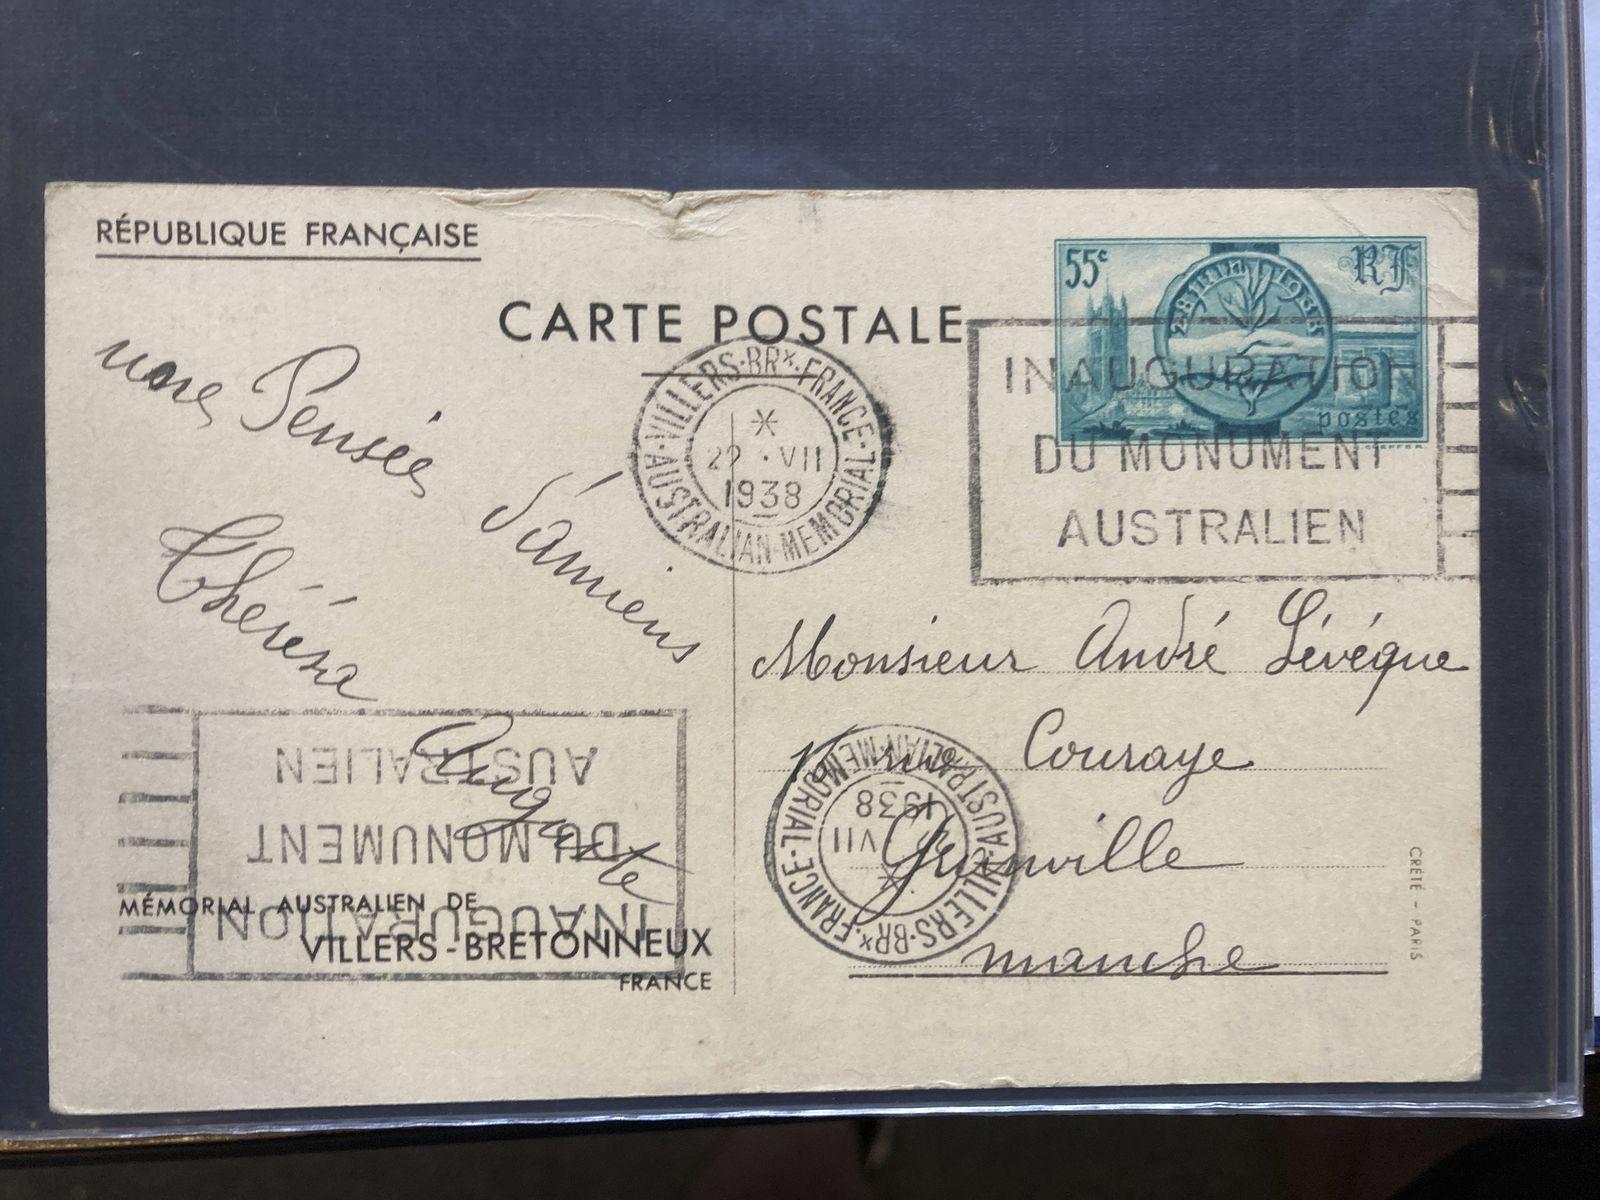 RÉPUBLIQUE FRANÇAISE
CARTE POSTALE
55c
RF
postes
VILLERS-BRx.FRANCE
*
22 · VII
1938
AUSTRALIAN-MEMORIAL
INAUGURATION
DU MONUMENT
AUSTRALIEN
Pensée
d'Amiens
Thérèse
Auguste
Monsieur André Lévéque
rue Couraye
Granville
manche
INAUGURATION
DU MONUMENT
AUSTRALIEN
VILLERS-BRx.FRANCE
*
VII
1938
AUSTRALIAN-MEMORIAL
MÉMORIAL AUSTRALIEN DE
VILLERS-BRETONNEUX
FRANCE
CRÉTÉ - PARIS